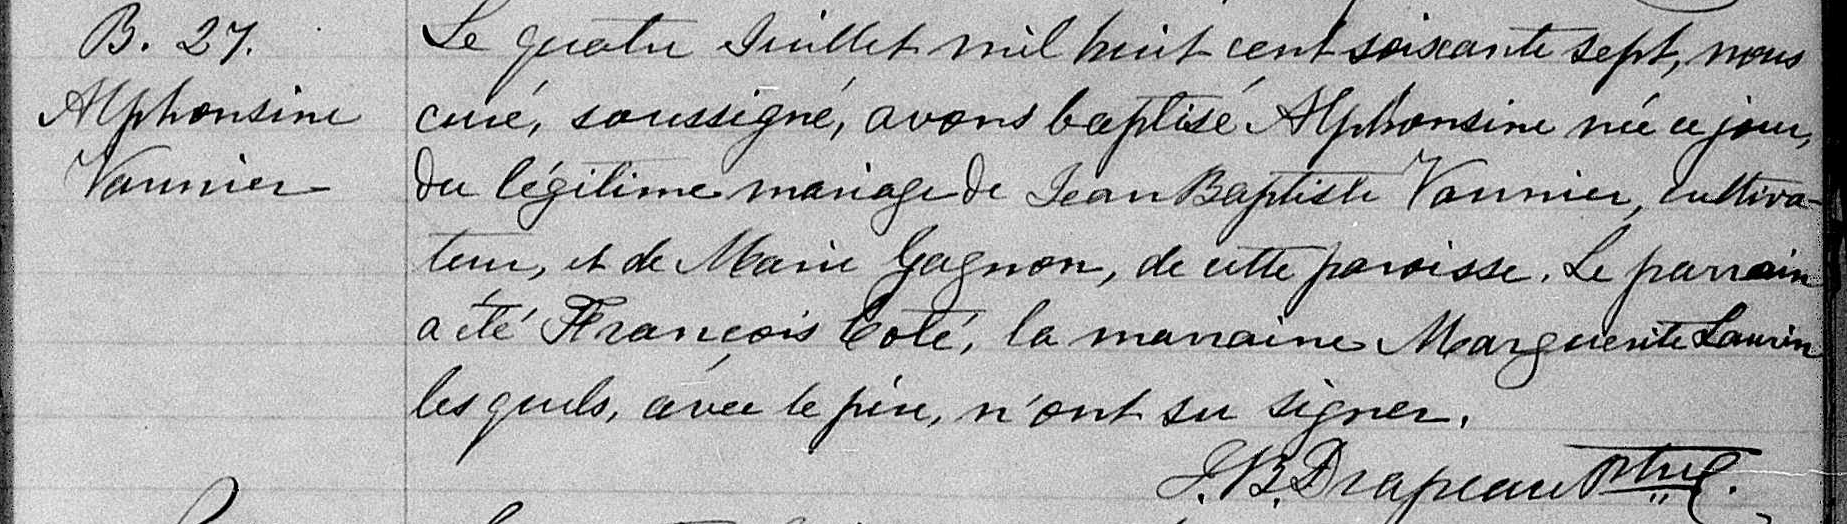 B. 27.
Alphonsine
Vannier
Le quatre Juillet mil huit cent soixante sept, nous
curé, soussigné, avons baptisé Alphonsine née ce jour,
du légitime mariage de Jean Baptiste Vannier, cultiva-
teur, et de Marie Gagnon, de cette paroisse. Le parrain
a été François Coté, la marraine Marguerite Laurin
lesquels, avec le père, n'ont su signer.
J.B. Drapeau Ptre C.